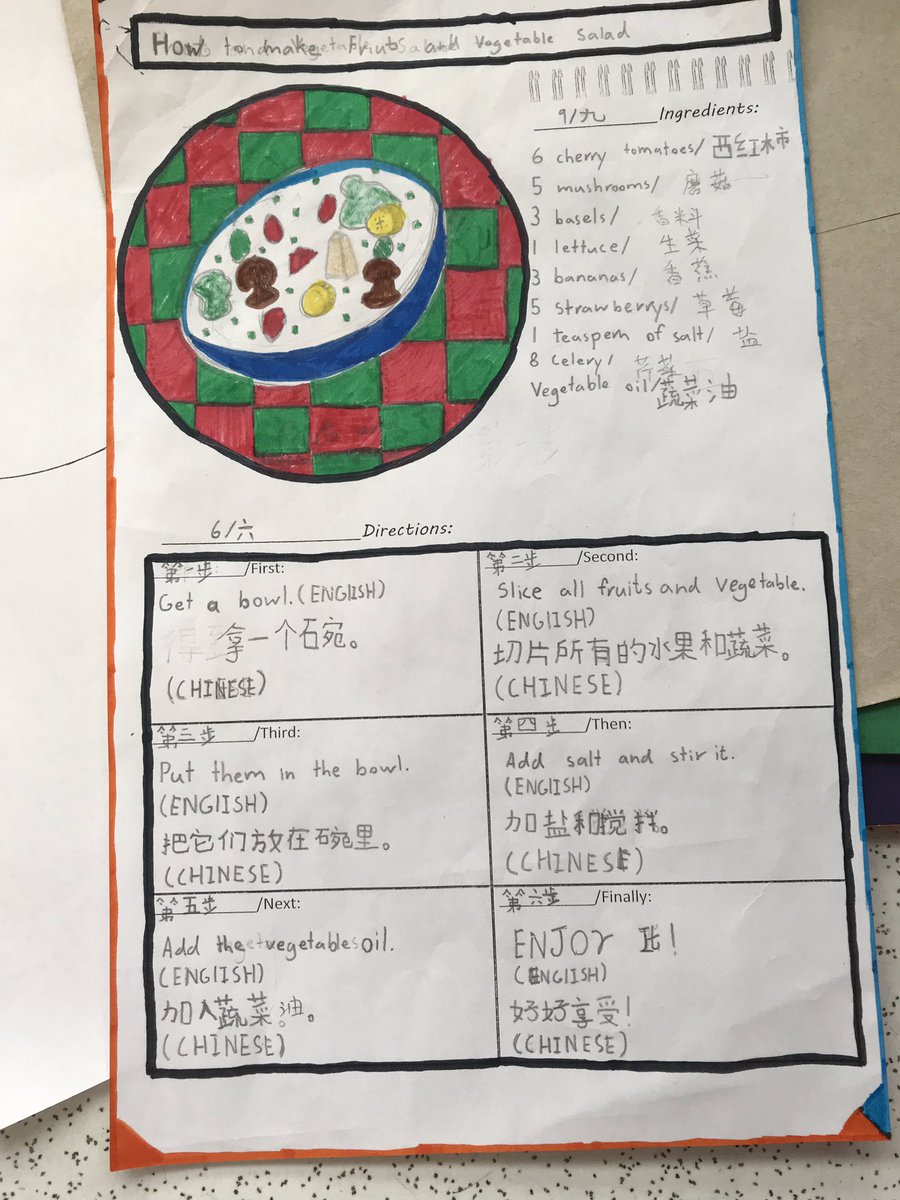 How to make Fruits and Vegetable Salad
9/九 Ingredients:
6 cherry tomatoes/西红柿
5 mushrooms/ 磨菇
3 basels/ 香料
1 lettuce/ 生菜
3 bananas/ 香蕉
5 strawberrys/ 草莓
1 teaspern of salt/ 盐
8 celery/ 芹菜
Vegetable oil/蔬菜油
6/六 Directions:
第一步/First:
Get a bowl.(ENGlISH)
拿一个碗。
(CHINESE)
第二步/Second:
Slice all fruits and vegetable.
(ENGlISH)
切片所有的水果和蔬菜。
(CHINESE)
第三步/Third:
Put them in the bowl.
(ENGlISH)
把它们放在碗里。
(CHINESE)
第四步/Then:
Add salt and stir it.
(ENGlISH)
加盐和搅拌。
(CHINESE)
第五步/Next:
Add the vegetables oil.
(ENGlISH)
加入蔬菜油。
(CHINESE)
第六步/Finally:
ENJOY It!
(ENGlISH)
好好享受!
(CHINESE)